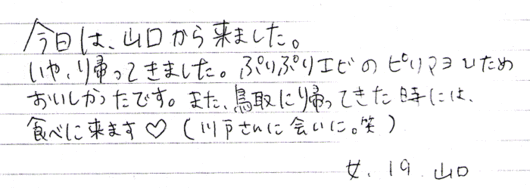 今日は、山口から来ました。
いや、り帰ってきました。ぷりぷりエビのピリマヨひため
おいしかったです。また、鳥取に帰ってきた時には、
食べに来ます♡(川戸さんに会いに。笑)
女. 19. 山口